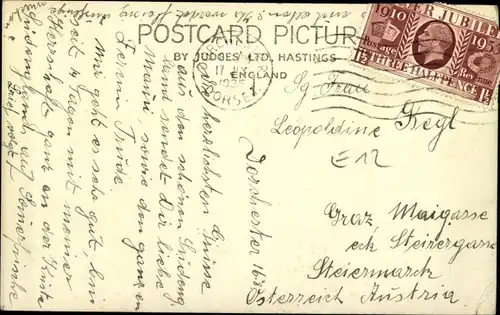 POSTCARD PICTURE
BY JUDGES' LTD, HASTINGS
ENGLAND
SILVER JUBILEE
1910 1935
Postage Revenue
1½ THREE HALFPENCE 1½
17
1935
DORSET
Dorchester 16.
die herzlichsten Grüsse
aus dem schönen Südeng
land sendet dir liebe
Mami, sowie den ganzen
Trude
Mir geht es sehr gut, bin
seit 4 Tagen mit meiner
Herrschaft ganz an der Küste
Südengland, auf
Brief folgt!
Leopoldine Fegl
E12
Graz, Maigasse
eck Steirergasse
Steiermark
Österreich Austria